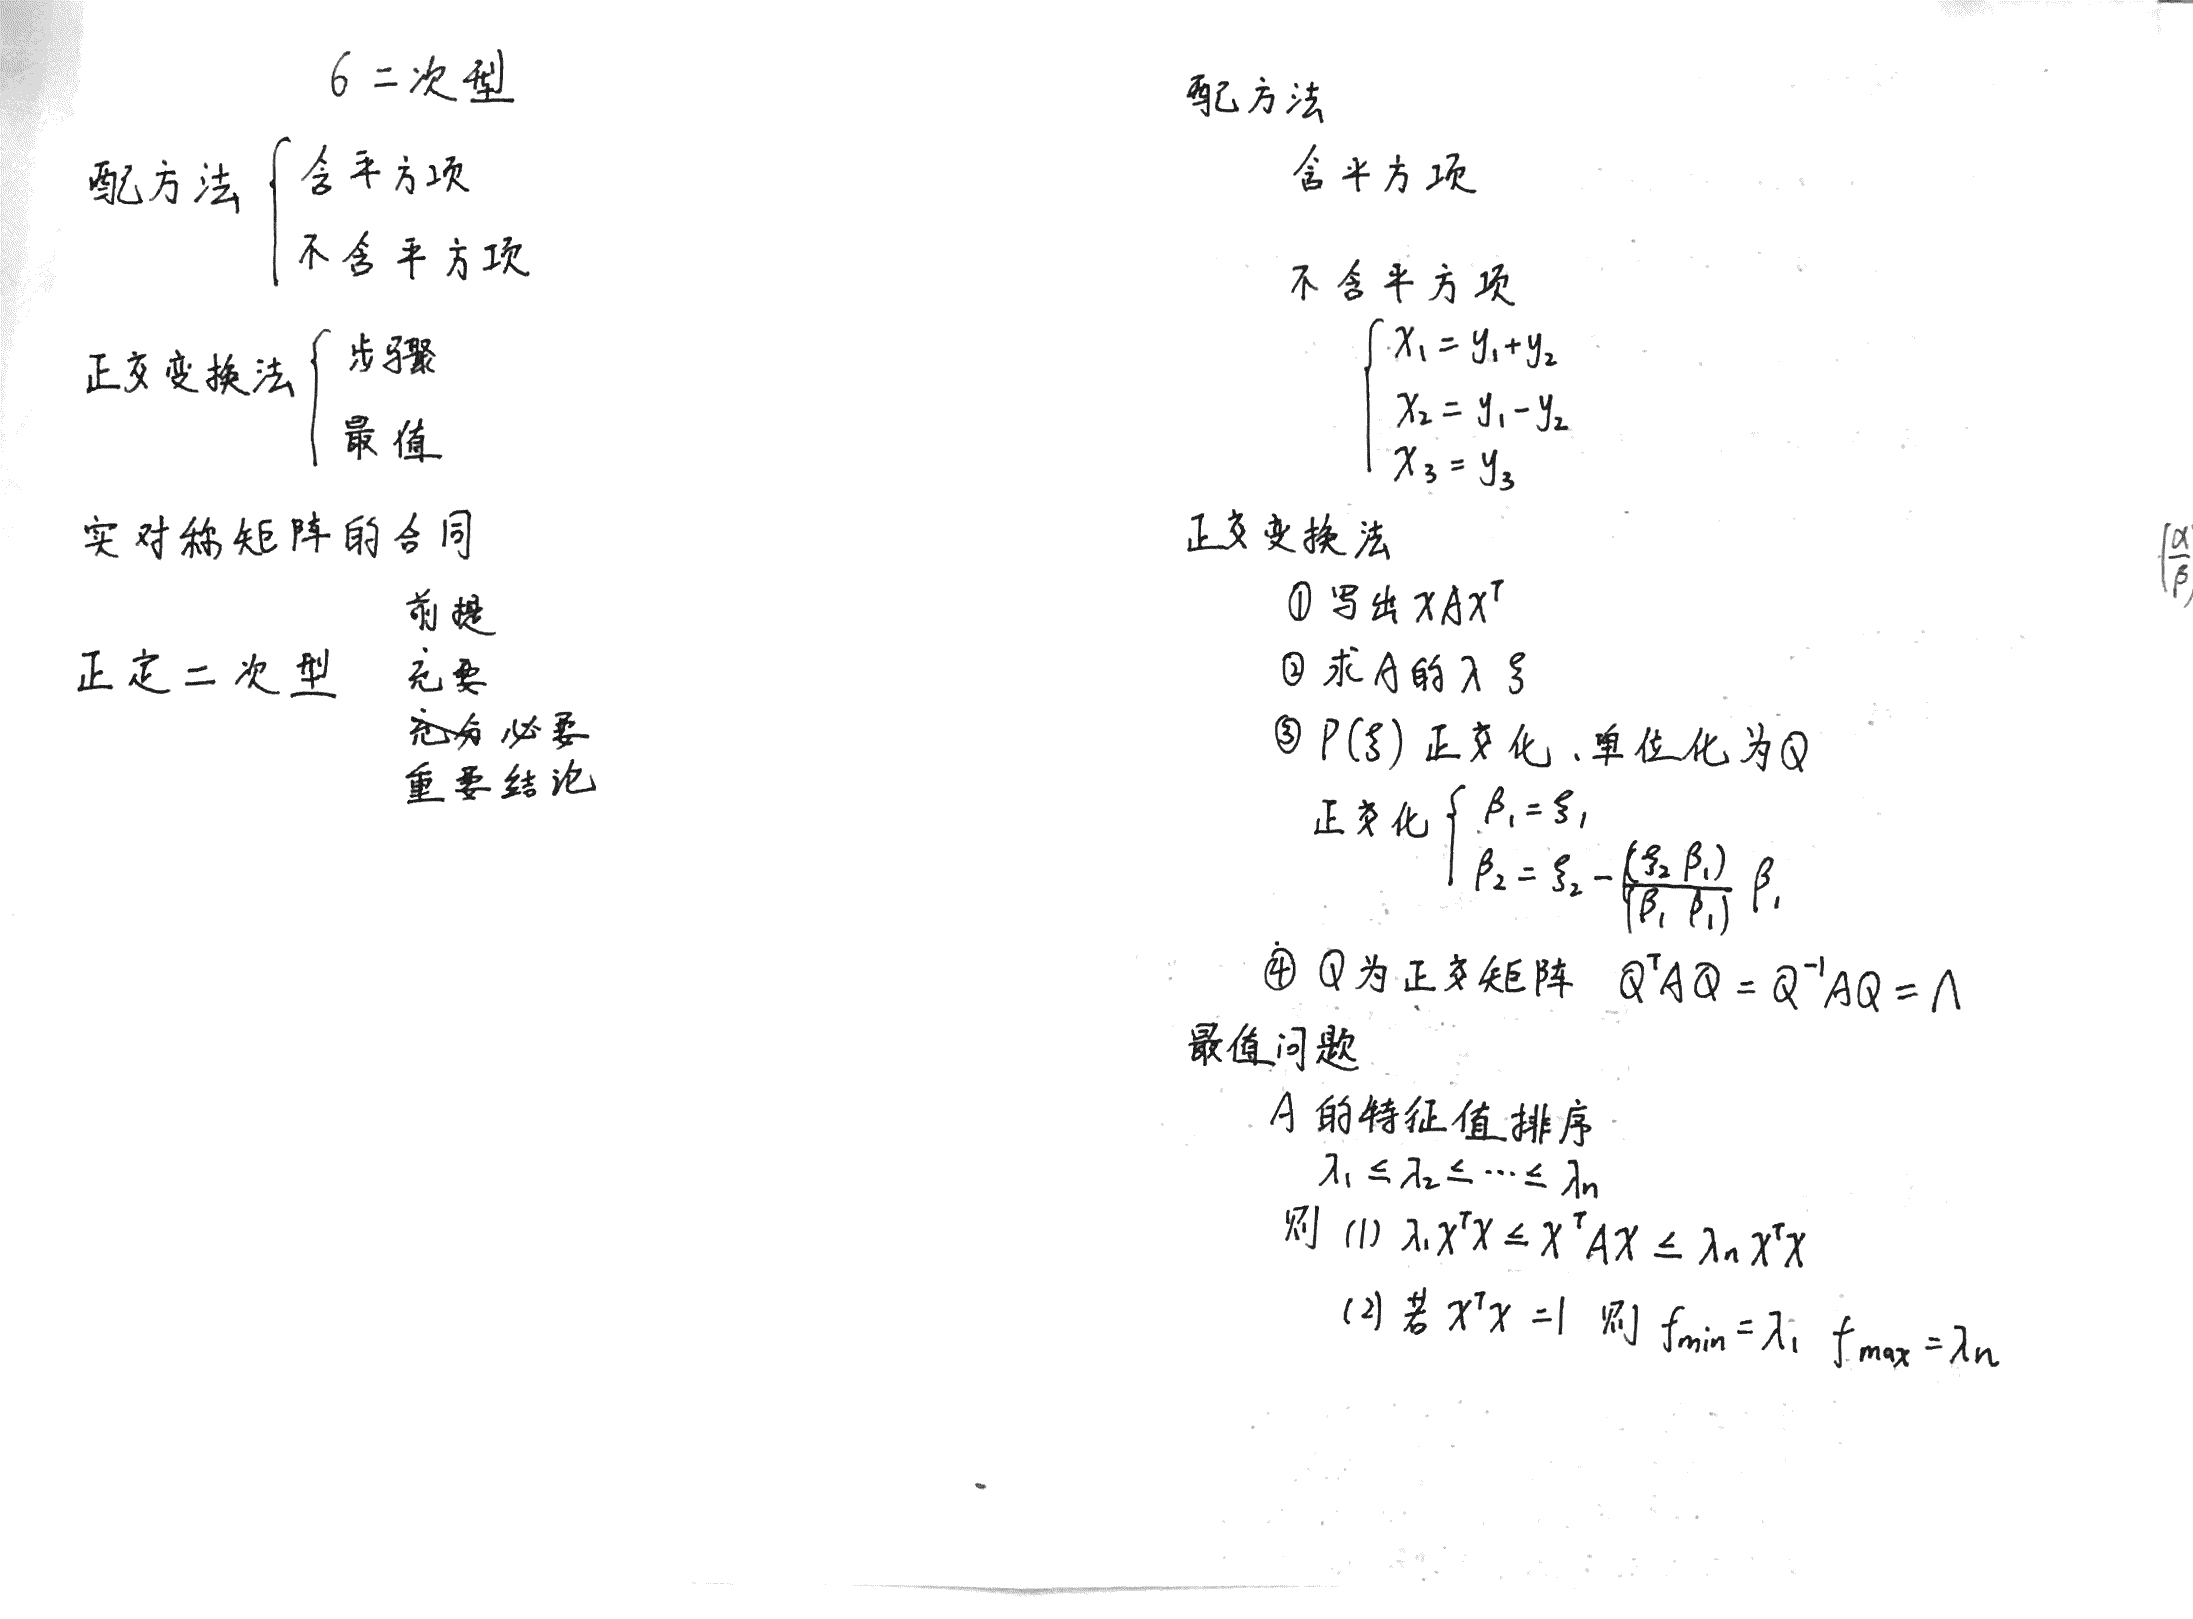 6 二次型
配方法 { 含平方项
不含平方项
正交变换法 { 步骤
最值
实对称矩阵的合同
前提
正定二次型 充要
充分必要
重要结论
配方法
含平方项
不含平方项
{ x₁ = y₁+y₂
x₂ = y₁-y₂
x₃ = y₃
正交变换法
① 写出 xAxᵀ
② 求A的 λ ξ
③ P(ξ) 正交化、单位化为Q
正交化 { β₁ = ξ₁
β₂ = ξ₂ - (ξ₂ β₁)/(β₁ β₁) β₁
④ Q为正交矩阵 QᵀAQ = Q⁻¹AQ = Λ
最值问题
A 的特征值排序
λ₁ ≤ λ₂ ≤ … ≤ λn
则 (1) λ₁xᵀx ≤ xᵀAx ≤ λn xᵀx
(2) 若 xᵀx = 1 则 fmin = λ₁ fmax = λn
α
β